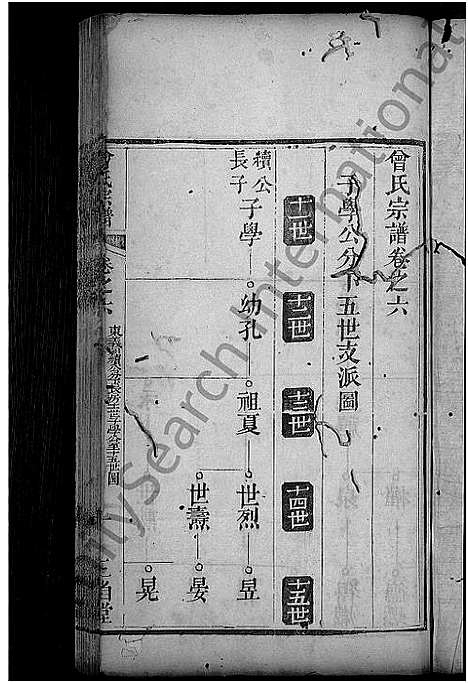 曾氏宗譜卷之六
子學公分下五世支派圖
十一世
十二世
十三世
十四世
十五世
續公長子
子學
幼孔
祖夏
世烈
昱
世燾
晏
晃
曾氏宗譜
卷之六
一
三省堂
FamilySearch International